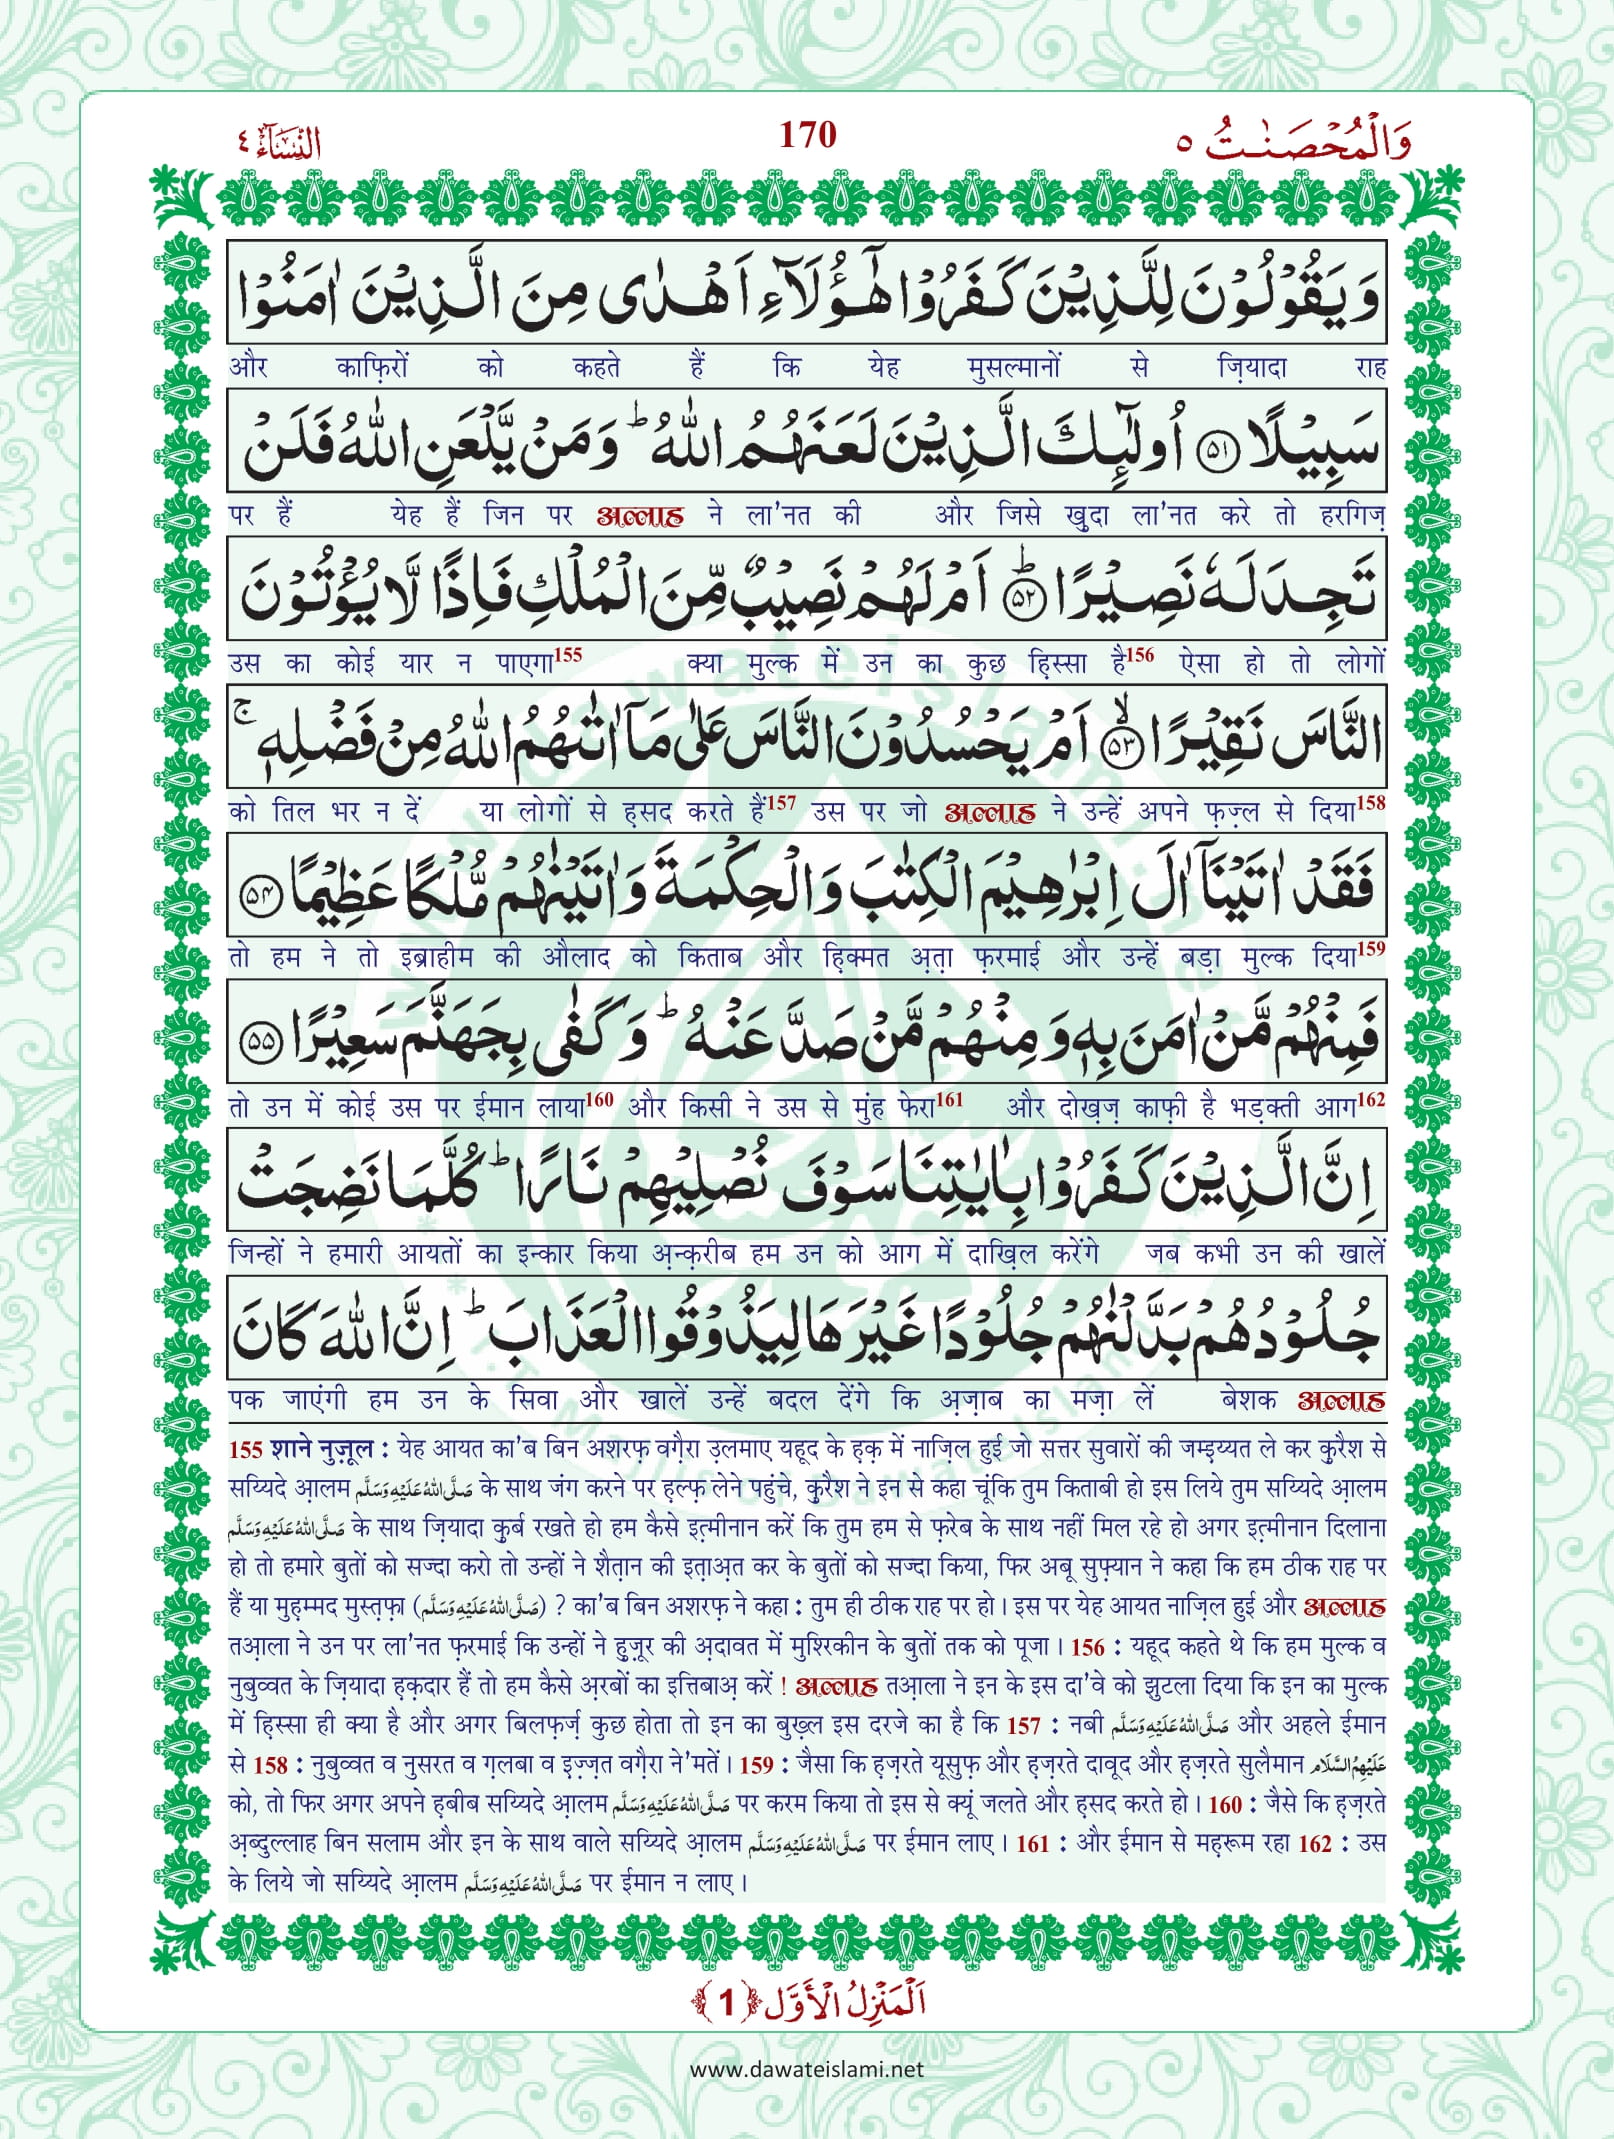 وَالْمُحْصَنٰتُ ٥
170
النِّسَآء ٤
وَ یَقُوْلُوْنَ لِلَّذِیْنَ كَفَرُوْا هٰۤؤُلَآءِ اَهْدٰى مِنَ الَّذِیْنَ اٰمَنُوْا
और काफ़िरों को कहते हैं कि येह मुसल्मानों से ज़ियादा राह
سَبِیْلًا ﴿۵۱﴾ اُولٰٓىٕكَ الَّذِیْنَ لَعَنَهُمُ اللّٰهُ ؕ وَ مَنْ یَّلْعَنِ اللّٰهُ فَلَنْ
पर हैं येह हैं जिन पर अल्लाह ने ला'नत की और जिसे खुदा ला'नत करे तो हरगिज़
تَجِدَ لَهٗ نَصِیْرًا ؕ﴿۵۲﴾ اَمْ لَهُمْ نَصِیْبٌ مِّنَ الْمُلْكِ فَاِذًا لَّا یُؤْتُوْنَ
उस का कोई यार न पाएगा155 क्या मुल्क में उन का कुछ हिस्सा है156 ऐसा हो तो लोगों
النَّاسَ نَقِیْرًا ۙ﴿۵۳﴾ اَمْ یَحْسُدُوْنَ النَّاسَ عَلٰى مَاۤ اٰتٰىهُمُ اللّٰهُ مِنْ فَضْلِهٖ ۚ
को तिल भर न दें या लोगों से ह़सद करते हैं157 उस पर जो अल्लाह ने उन्हें अपने फ़ज़्ल से दिया158
فَقَدْ اٰتَیْنَاۤ اٰلَ اِبْرٰهِیْمَ الْكِتٰبَ وَ الْحِكْمَةَ وَ اٰتَیْنٰهُمْ مُّلْكًا عَظِیْمًا ﴿۵۴﴾
तो हम ने तो इब्राहीम की औलाद को किताब और ह़िक्मत अ़त़ा फ़रमाई और उन्हें बड़ा मुल्क दिया159
فَمِنْهُمْ مَّنْ اٰمَنَ بِهٖ وَ مِنْهُمْ مَّنْ صَدَّ عَنْهُ ؕ وَ كَفٰى بِجَهَنَّمَ سَعِیْرًا ﴿۵۵﴾
तो उन में कोई उस पर ईमान लाया160 और किसी ने उस से मुंह फेरा161 और दोख़ज़ काफ़ी है भड़क्ती आग162
اِنَّ الَّذِیْنَ كَفَرُوْا بِاٰیٰتِنَا سَوْفَ نُصْلِیْهِمْ نَارًا ؕ كُلَّمَا نَضِجَتْ
जिन्हों ने हमारी आयतों का इन्कार किया अ़न्क़रीब हम उन को आग में दाख़िल करेंगे जब कभी उन की खालें
جُلُوْدُهُمْ بَدَّلْنٰهُمْ جُلُوْدًا غَیْرَهَا لِیَذُوْقُوا الْعَذَابَ ؕ اِنَّ اللّٰهَ كَانَ
पक जाएंगी हम उन के सिवा और खालें उन्हें बदल देंगे कि अ़ज़ाब का मज़ा लें बेशक अल्लाह
155 शाने नुज़ूल : येह आयत का'ब बिन अशरफ़ वग़ैरा उ़लमाए यहूद के ह़क़ में नाज़िल हुई जो सत्तर सुवारों की जम्इ़य्यत ले कर क़ुरैश से
सय्यिदे आ़लम صَلَّى اللهُ عَلَيْهِ وَسَلَّم के साथ जंग करने पर ह़ल्फ़ लेने पहुंचे, क़ुरैश ने इन से कहा चूंकि तुम किताबी हो इस लिये तुम सय्यिदे आ़लम
صَلَّى اللهُ عَلَيْهِ وَسَلَّم के साथ ज़ियादा क़ुर्ब रखते हो हम कैसे इत्मीनान करें कि तुम हम से फ़रेब के साथ नहीं मिल रहे हो अगर इत्मीनान दिलाना
हो तो हमारे बुतों को सज्दा करो तो उन्हों ने शैत़ान की इत़ाअ़त कर के बुतों को सज्दा किया, फिर अबू सुफ़्यान ने कहा कि हम ठीक राह पर
हैं या मुह़म्मद मुस्त़फ़ा (صَلَّى اللهُ عَلَيْهِ وَسَلَّم) ? का'ब बिन अशरफ़ ने कहा : तुम ही ठीक राह पर हो। इस पर येह आयत नाज़िल हुई और अल्लाह
तआ़ला ने उन पर ला'नत फ़रमाई कि उन्हों ने ह़ुज़ूर की अ़दावत में मुश्रिकीन के बुतों तक को पूजा। 156 : यहूद कहते थे कि हम मुल्क व
नुबुव्वत के ज़ियादा ह़क़दार हैं तो हम कैसे अ़रबों का इत्तिबाअ़ करें ! अल्लाह तआ़ला ने इन के इस दा'वे को झुटला दिया कि इन का मुल्क
में हि़स्सा ही क्या है और अगर बिलफ़र्ज़ कुछ होता तो इन का बुख़्ल इस दरजे का है कि 157 : नबी صَلَّى اللهُ عَلَيْهِ وَسَلَّم और अहले ईमान
से 158 : नुबुव्वत व नुसरत व ग़लबा व इ़ज़्ज़त वग़ैरा ने'मतें। 159 : जैसा कि ह़ज़रते यूसुफ़ और ह़ज़रते दावूद और ह़ज़रते सुलैमान عَلَيْهِمُ السَّلَام
को, तो फिर अगर अपने ह़बीब सय्यिदे आ़लम صَلَّى اللهُ عَلَيْهِ وَسَلَّم पर करम किया तो इस से क्यूं जलते और ह़सद करते हो। 160 : जैसे कि ह़ज़रते
अ़ब्दुल्लाह बिन सलाम और इन के साथ वाले सय्यिदे आ़लम صَلَّى اللهُ عَلَيْهِ وَسَلَّم पर ईमान लाए। 161 : और ईमान से मह़रूम रहा 162 : उस
के लिये जो सय्यिदे आ़लम صَلَّى اللهُ عَلَيْهِ وَسَلَّم पर ईमान न लाए।
اَلْمَنْزِلُ الْاَوَّل ﴿1﴾
www.dawateislami.net